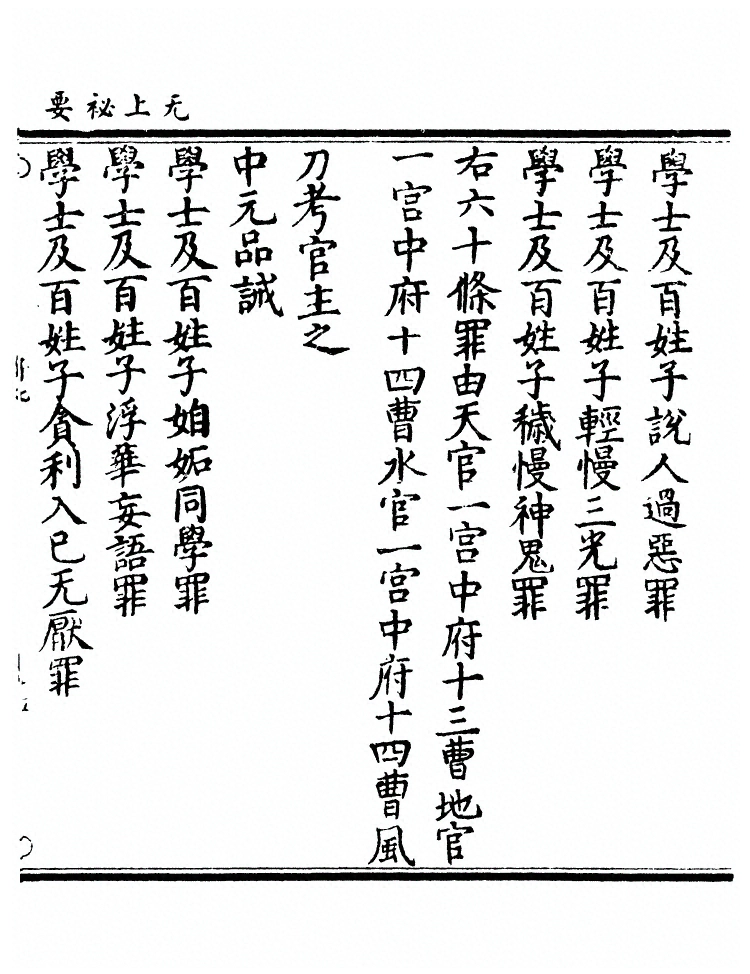 无上祕要
學士及百姓子說人過惡罪
學士及百姓子輕慢三光罪
學士及百姓子穢慢神鬼罪
右六十條罪由天官一宮中府十三曹地官
一宮中府十四曹水官一宮中府十四曹風
刀考官主之
中元品誡
學士及百姓子妬同學罪
學士及百姓子浮華妄語罪
學士及百姓子貪利入已无厭罪